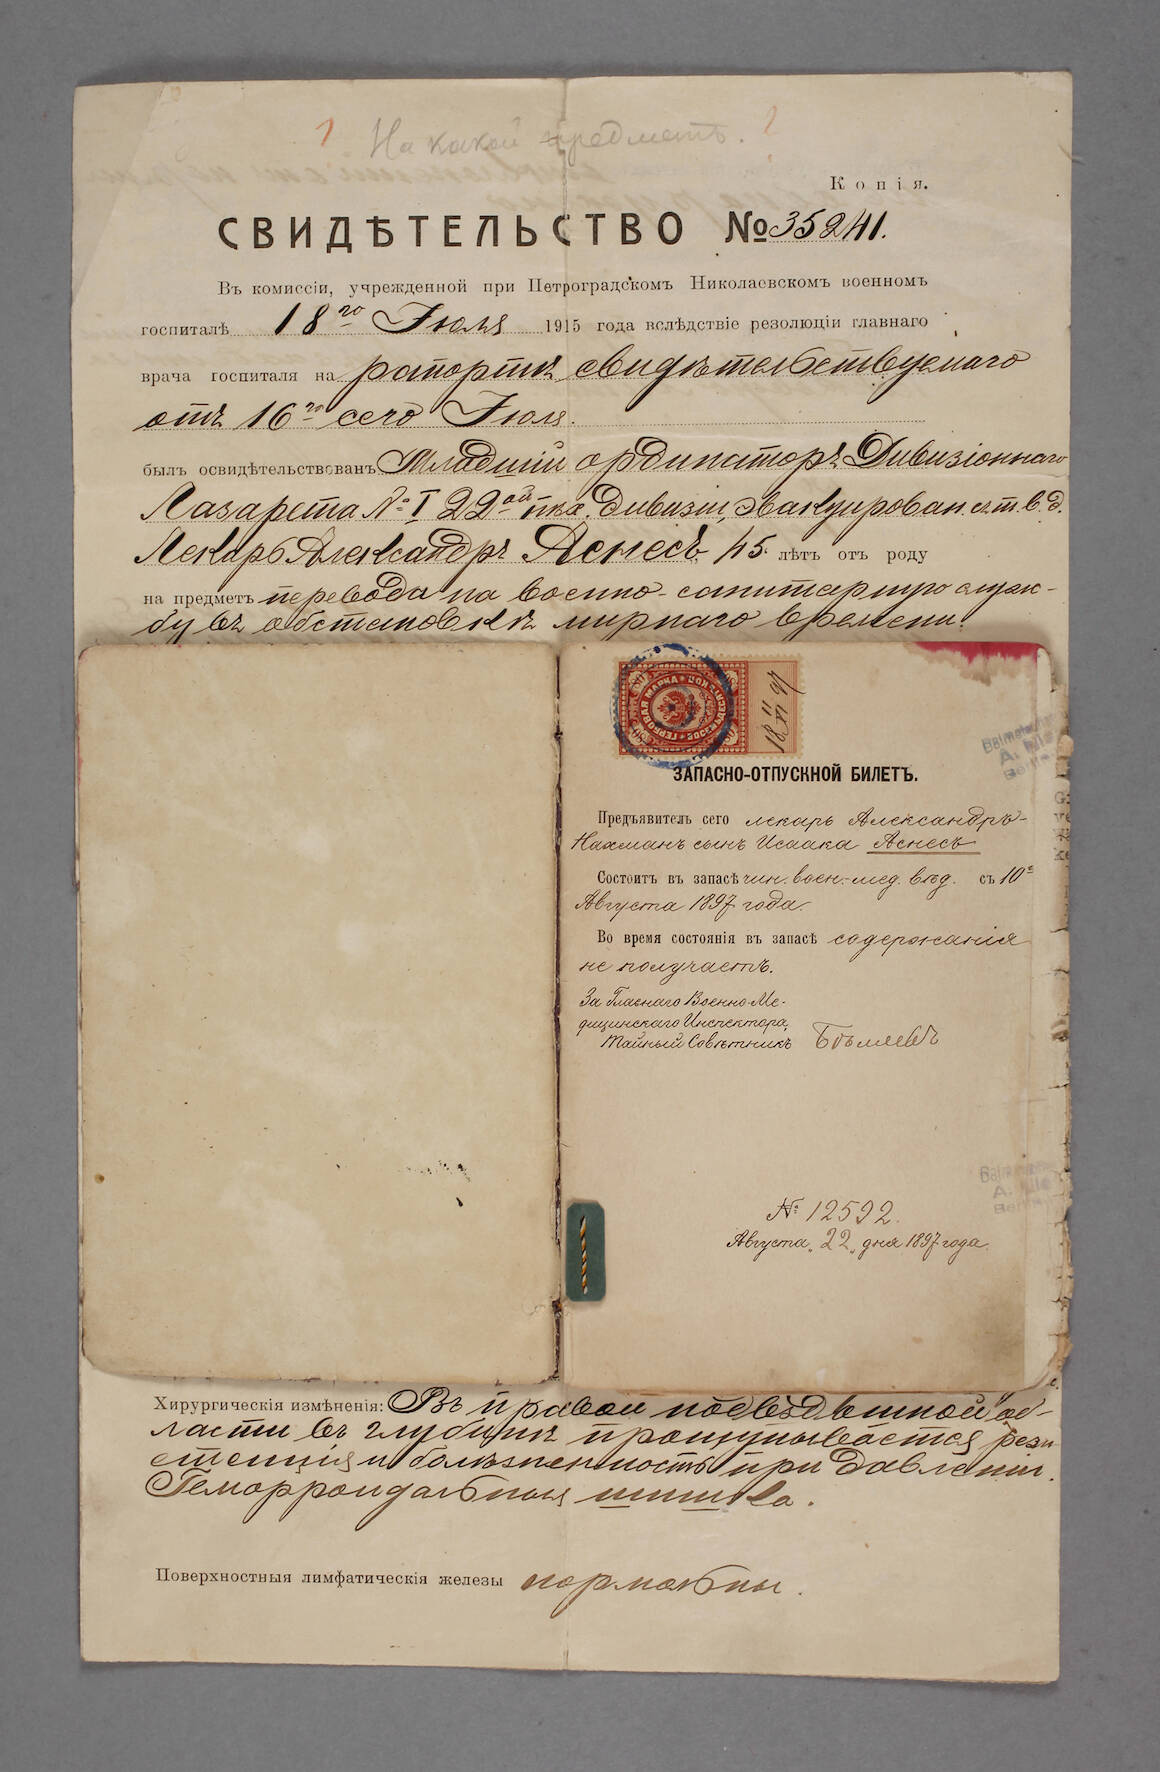 На какой предметъ.
Копія.
СВИДѢТЕЛЬСТВО №35241.
Въ комиссіи, учрежденной при Петроградскомъ Николаевскомъ военномъ
госпиталѣ 18го Іюля 1915 года вслѣдствіе резолюціи главнаго
врача госпиталя на рапортѣ свидѣтельствуемаго
отъ 16го сего Іюля.
былъ освидѣтельствованъ Младшій ординаторъ Дивизіоннаго
Лазарета № I 22ой пѣх. Дивизіи, эвакуирован. съ т. в. д.
Лекарь Александръ Аснесъ, 45 лѣтъ отъ роду
на предметъ перевода на военно-санитарную служ-
бу въ обстановкѣ мирнаго времени.
ГЕРБОВАЯ МАРКА
80
18 11/XI 97
ЗАПАСНО-ОТПУСКНОЙ БИЛЕТЪ.
Предъявитель сего лекарь Александръ-
Нахманъ сынъ Исаака Аснесъ
Состоитъ въ запасѣ чин. воен.-мед. вѣд. съ 10го
Августа 1897 года.
Во время состоянія въ запасѣ содержанія
не получаетъ.
За Главнаго Военно-Ме-
дицинскаго Инспектора,
Тайный Совѣтникъ
№ 12592.
Августа „22„ дня 1897 года.
Хирургическія измѣненія: Въ правой подвздошной об-
ласти въ глубинѣ прощупывается рези
стенція и болѣзненность при давленіи.
Геморроидальныя шишка.
Поверхностныя лимфатическія железы нормальны.